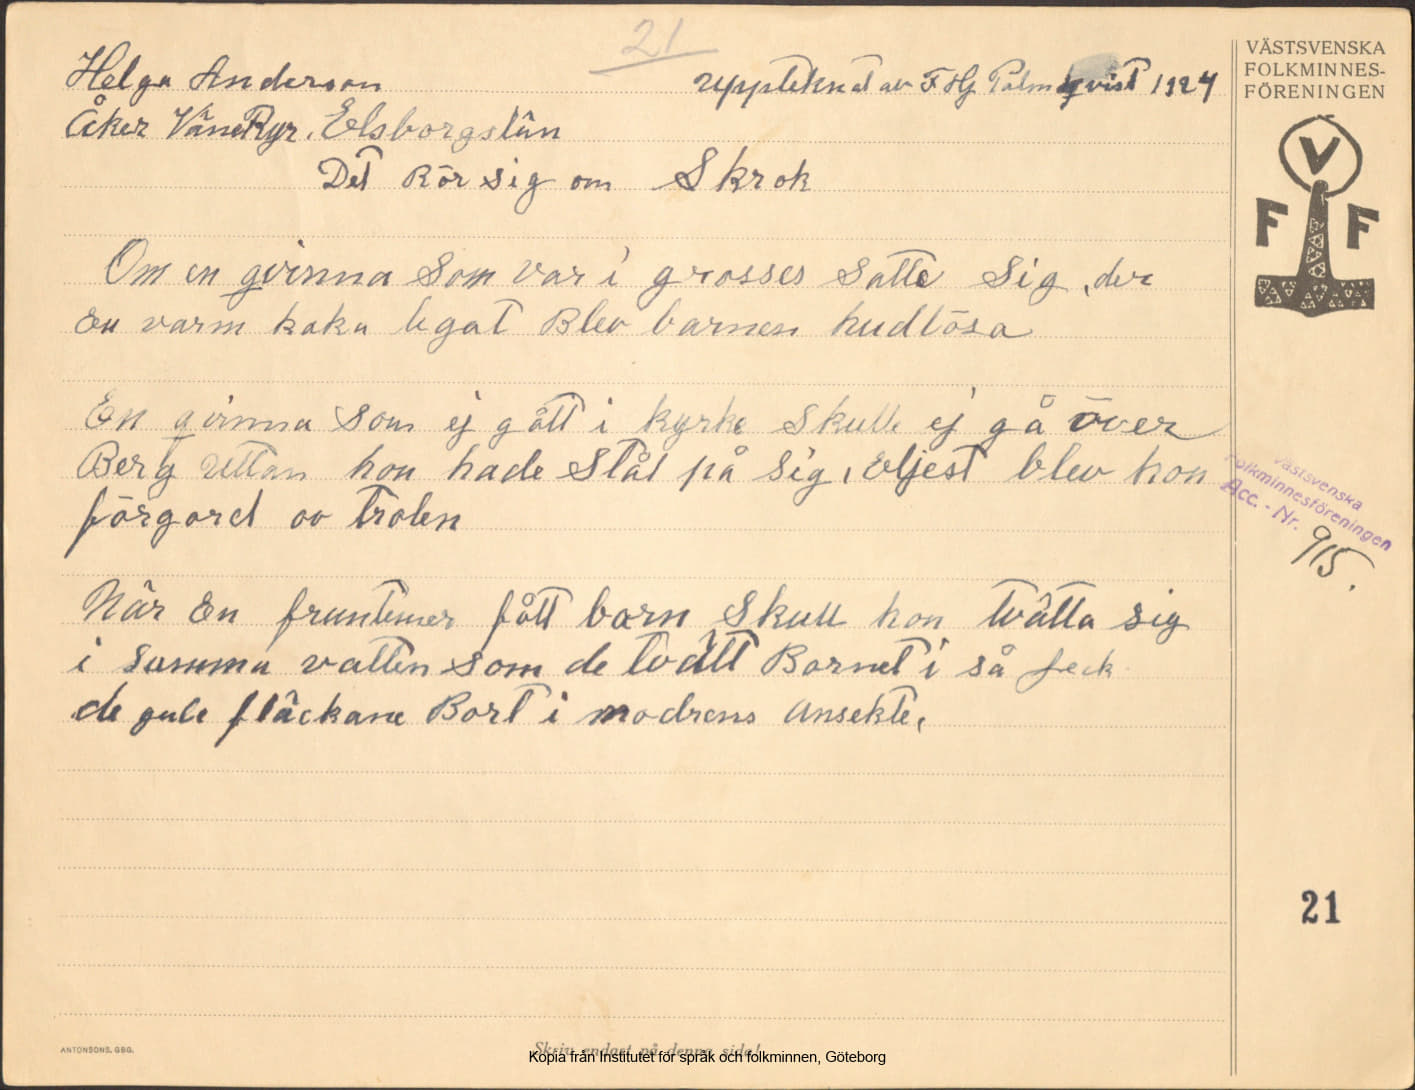 21
Helga Anderson
Uppteknat av F Hj Palmqvist 1924
Åker VäneRyr. Elsborgslän
Det Rör sig om Skrok
Om en qvinna Som var i grosses Satte Sig, der
En varm kaka legat Blev barnen hudlösa
En qvinna Som ej gått i kyrke Skulle ej gå över
Berg Uttan hon hade Stål på Sig, Eljest blev hon
förgord av Trolen
När En fruntimer fått barn Skull hon tvätta sig
i Samma vatten som de tvätt Barnet i så feck
de gule fläckane Bort i modrens Ansekte,
VÄSTSVENSKA
FOLKMINNES-
FÖRENINGEN
V
F F
Västsvenska
Folkminnesföreningen
Acc. - Nr. 915.
21
ANTONSONS, GBG.
Skriv endast på denna sida!
Kopia från Institutet för språk och folkminnen, Göteborg